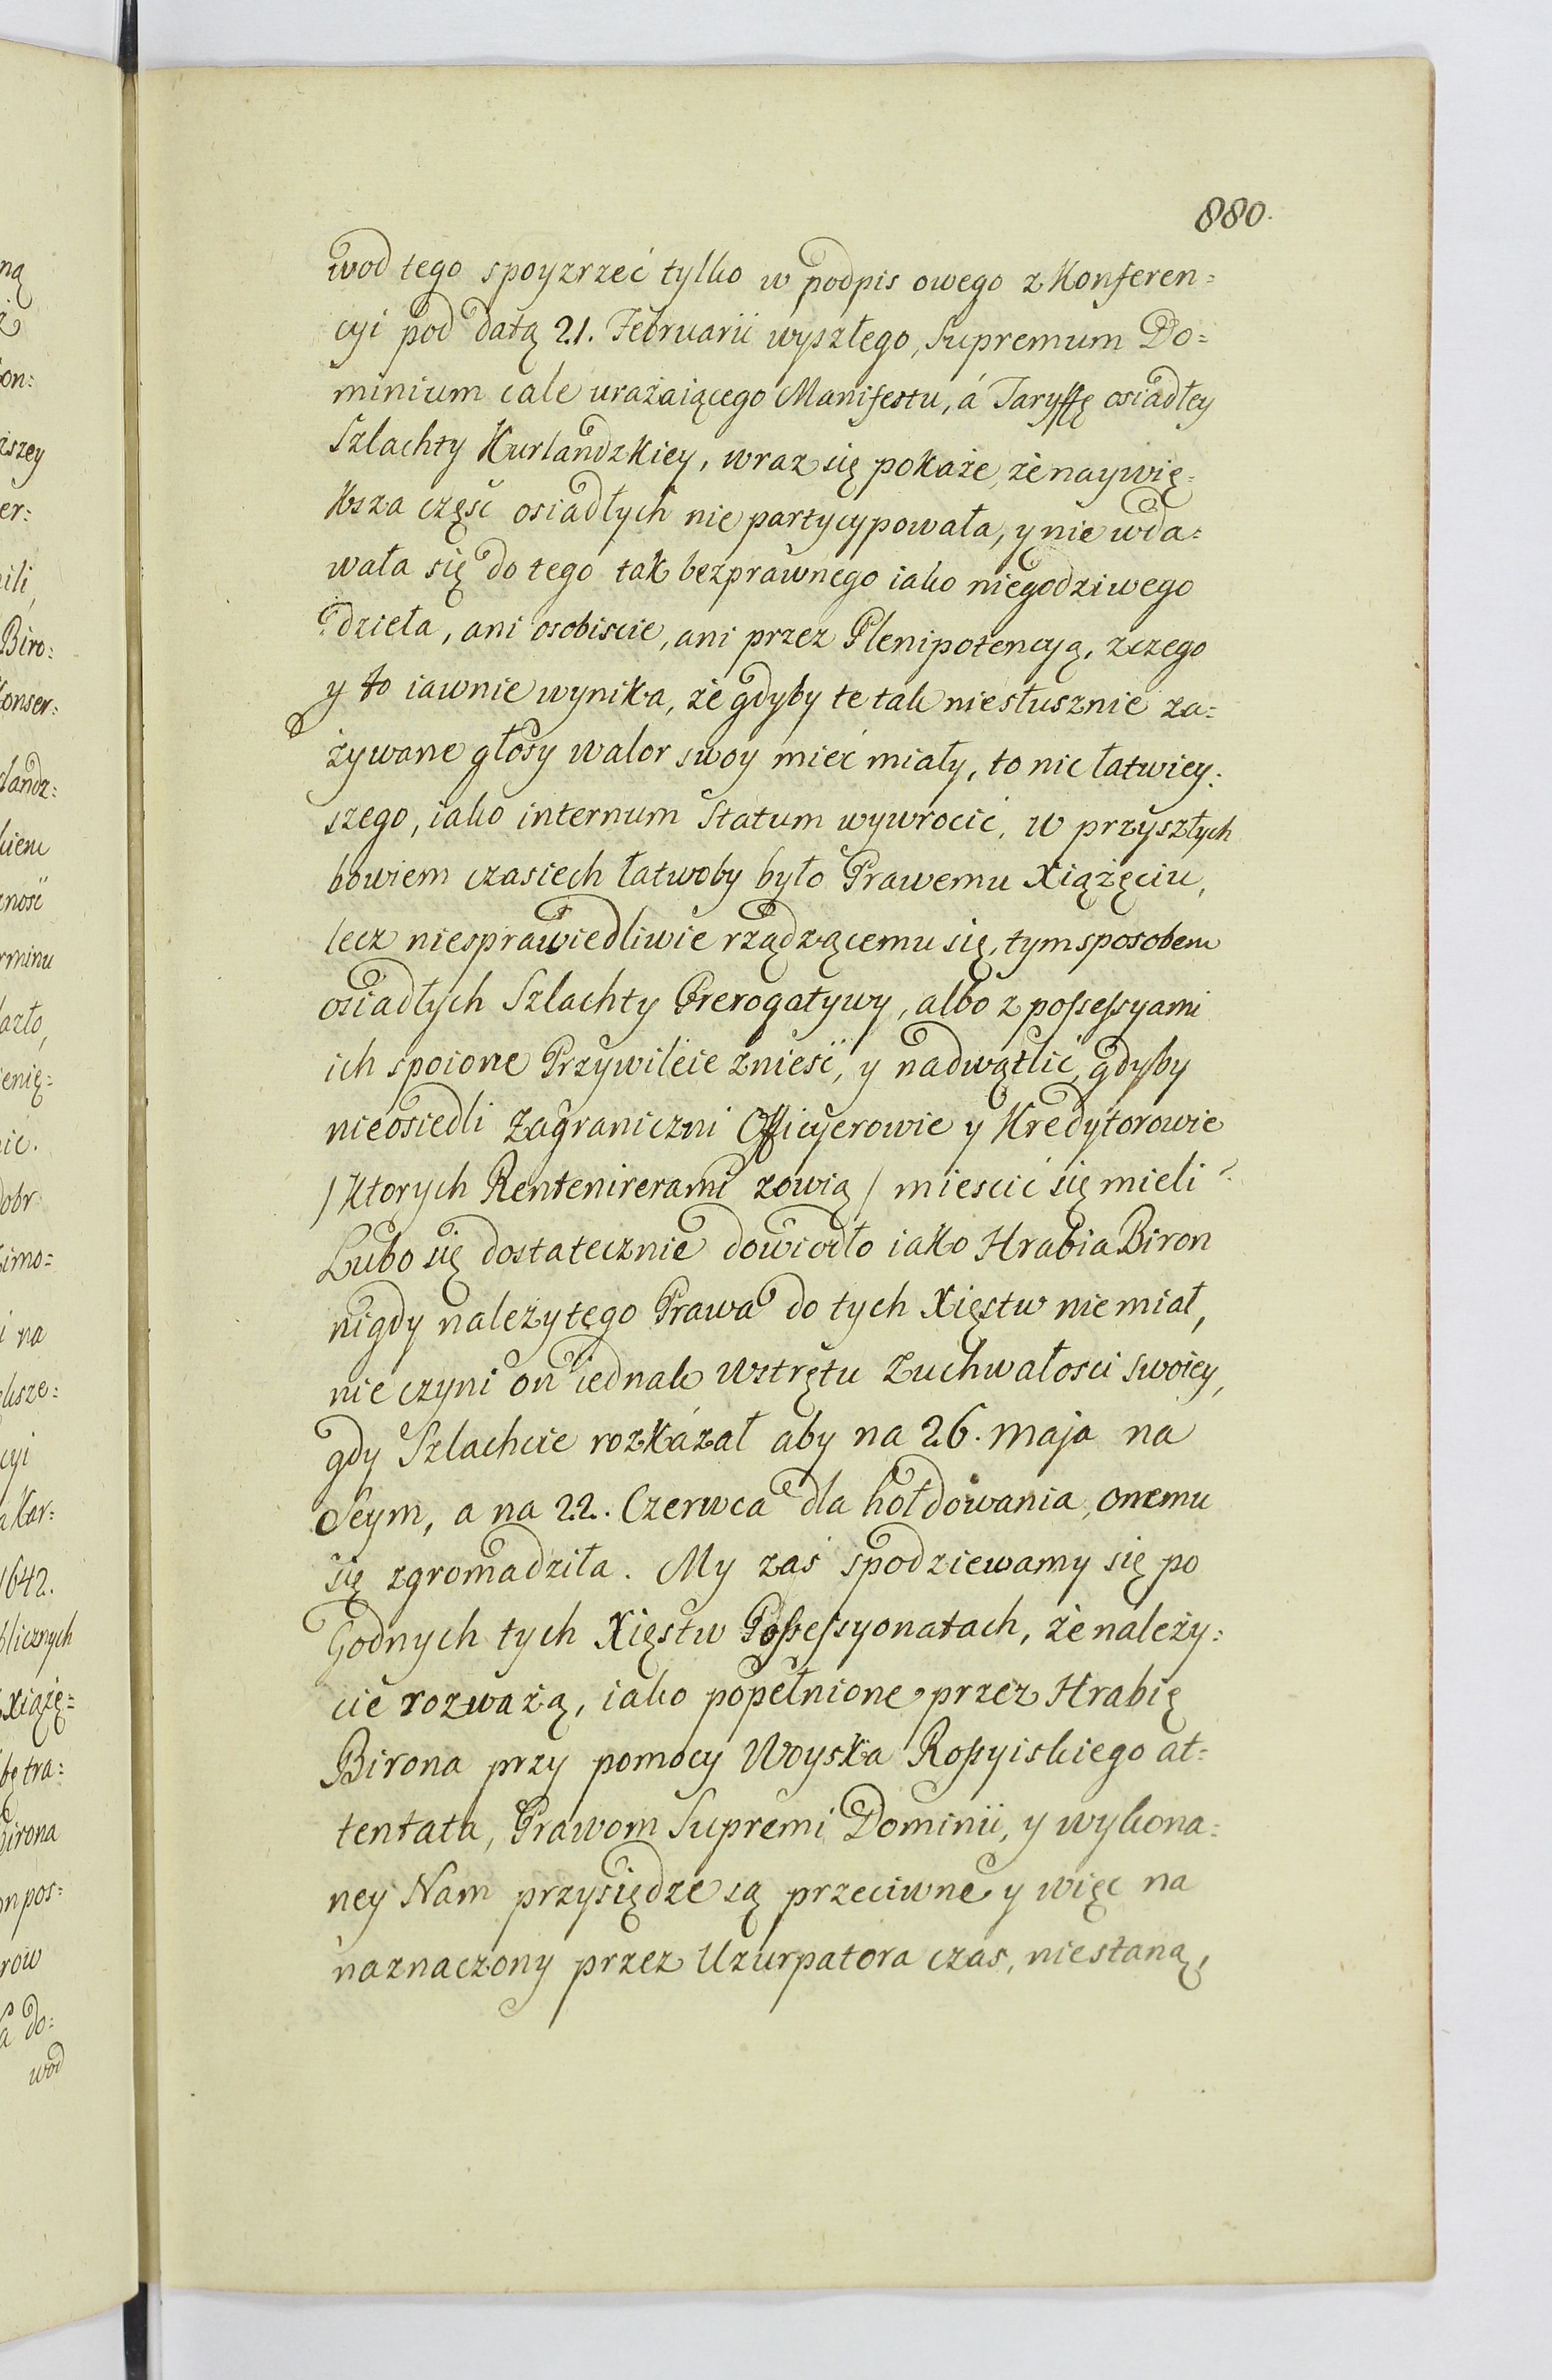 880.
wod tego spoyzrzeć tylko w podpis owego z Konferen=
cyi pod datą 21. Februarii wyszłego, Supremum Do=
minium cale urażaiącego Manifestu, á Taryffę osiadłey
Szlachty Kurlandzkiey, wraz się pokaże, że naywię=
ksza częsc osiadłych nie partycypowała, y nie wda=
wała się do tego tak bezprawnego iako niegodziwego
dzieła, ani osobiscie, ani przez Plenipotencyą, zczego
y to iawnie wynika, że gdyby te tak niesłusznie za=
żywane głosy walor swoy mieć miały, to nic łatwiey:
szego, iako internum Statum wywrocić, w przyszłych
bowiem czasiech łatwoby było Prawemu Xiążęciu,
lecz niesprawiedliwie rządzącemu się, tym sposobem
osiadłych Szlachty Prerogatywy, albo z possessyami
ich spoione Przywileie znieść, y nadwątlić, gdyby
nieosiedli Zagraniczni Officyerowie y Kredytorowie
/ Ktorych Rentenirerami zowią / miescić się mieli?
Lubo się dostatecznie dowiodło iako Hrabia Biron
nigdy należytego Prawa do tych Xięstw niemiał,
nie czyni on iednak Wstrętu Zuchwałosci swoiey,
gdy Szlachcie rozkázał aby na 26. Maja na
Seym, a na 22. Czerwca dla hołdowania onemu
się zgromadziła. My zaś spodziewamy się po
Godnych tych Xięstw Possessyonatach, że należy:
cie rozważą, iako popełnione przez Hrabię
Birona przy pomocy Woyska Rossyiskiego at=
tentata, Prawom Supremi Dominii, y wykona=
ney Nam przysiędze są przeciwne y więc na
naznaczony przez Uzurpatora czas, niestaną,
ną
on:
iszey
er:
ili,
Biro:
onser:
landz:
kiem
zność
rminu
azło,
enię=
ic.
dobr
imo=
i na
ksze:
cyi
a Kar:
1642.
blicznych
Xiążę=
bę tra:
Birona
on pos=
row
a do:
wod